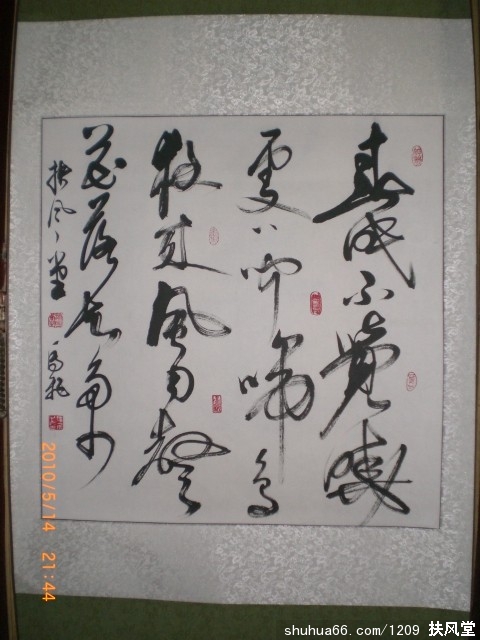 春眠不覺曉
处处闻啼鳥
夜来風雨聲
花落知多少
扶风堂
2010/5/14 21:44
shuhua66.com/1209 扶风堂